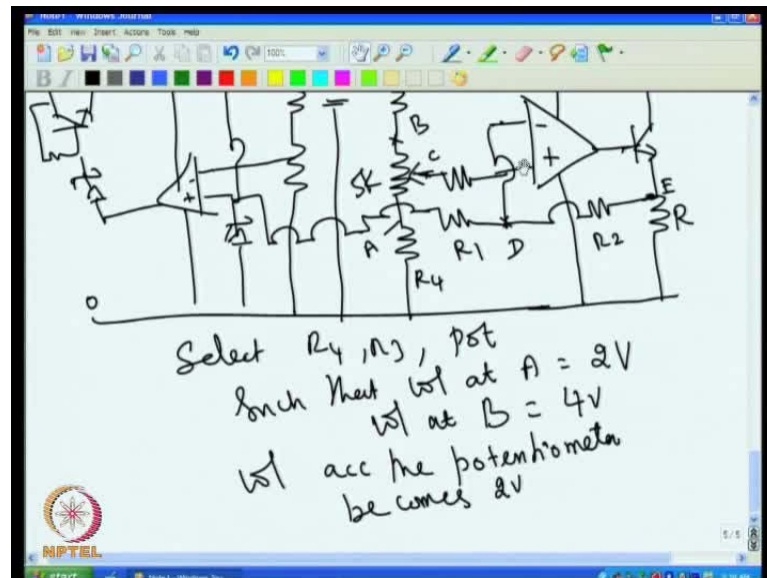 Note1 - Windows Journal
File Edit View Insert Actions Tools Help
100%
B I
B
C
5K
A
R4
R1
D
R2
E
R
-
+
+
0
Select R4, R3, pot
Such that vol at A = 2V
vol at B = 4V
vol acc the potentiometer
becomes 2V
NPTEL
5/5
start